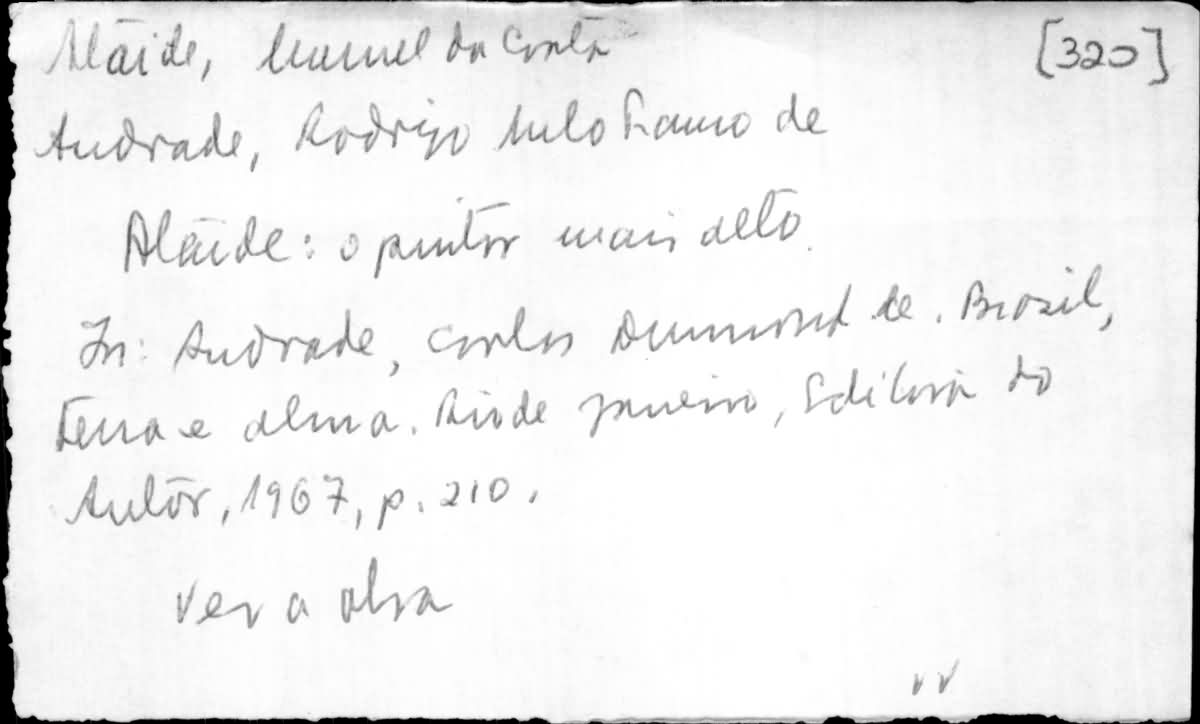 Ataíde, Manuel da Costa [320]
Andrade, Rodrigo Melo Franco de
Ataíde: o pintor mais alto.
In: Andrade, Carlos Drummond de. Brasil,
terra e alma. Rio de Janeiro, Editora do
Autor, 1967, p. 210.
Ver a obra
vv